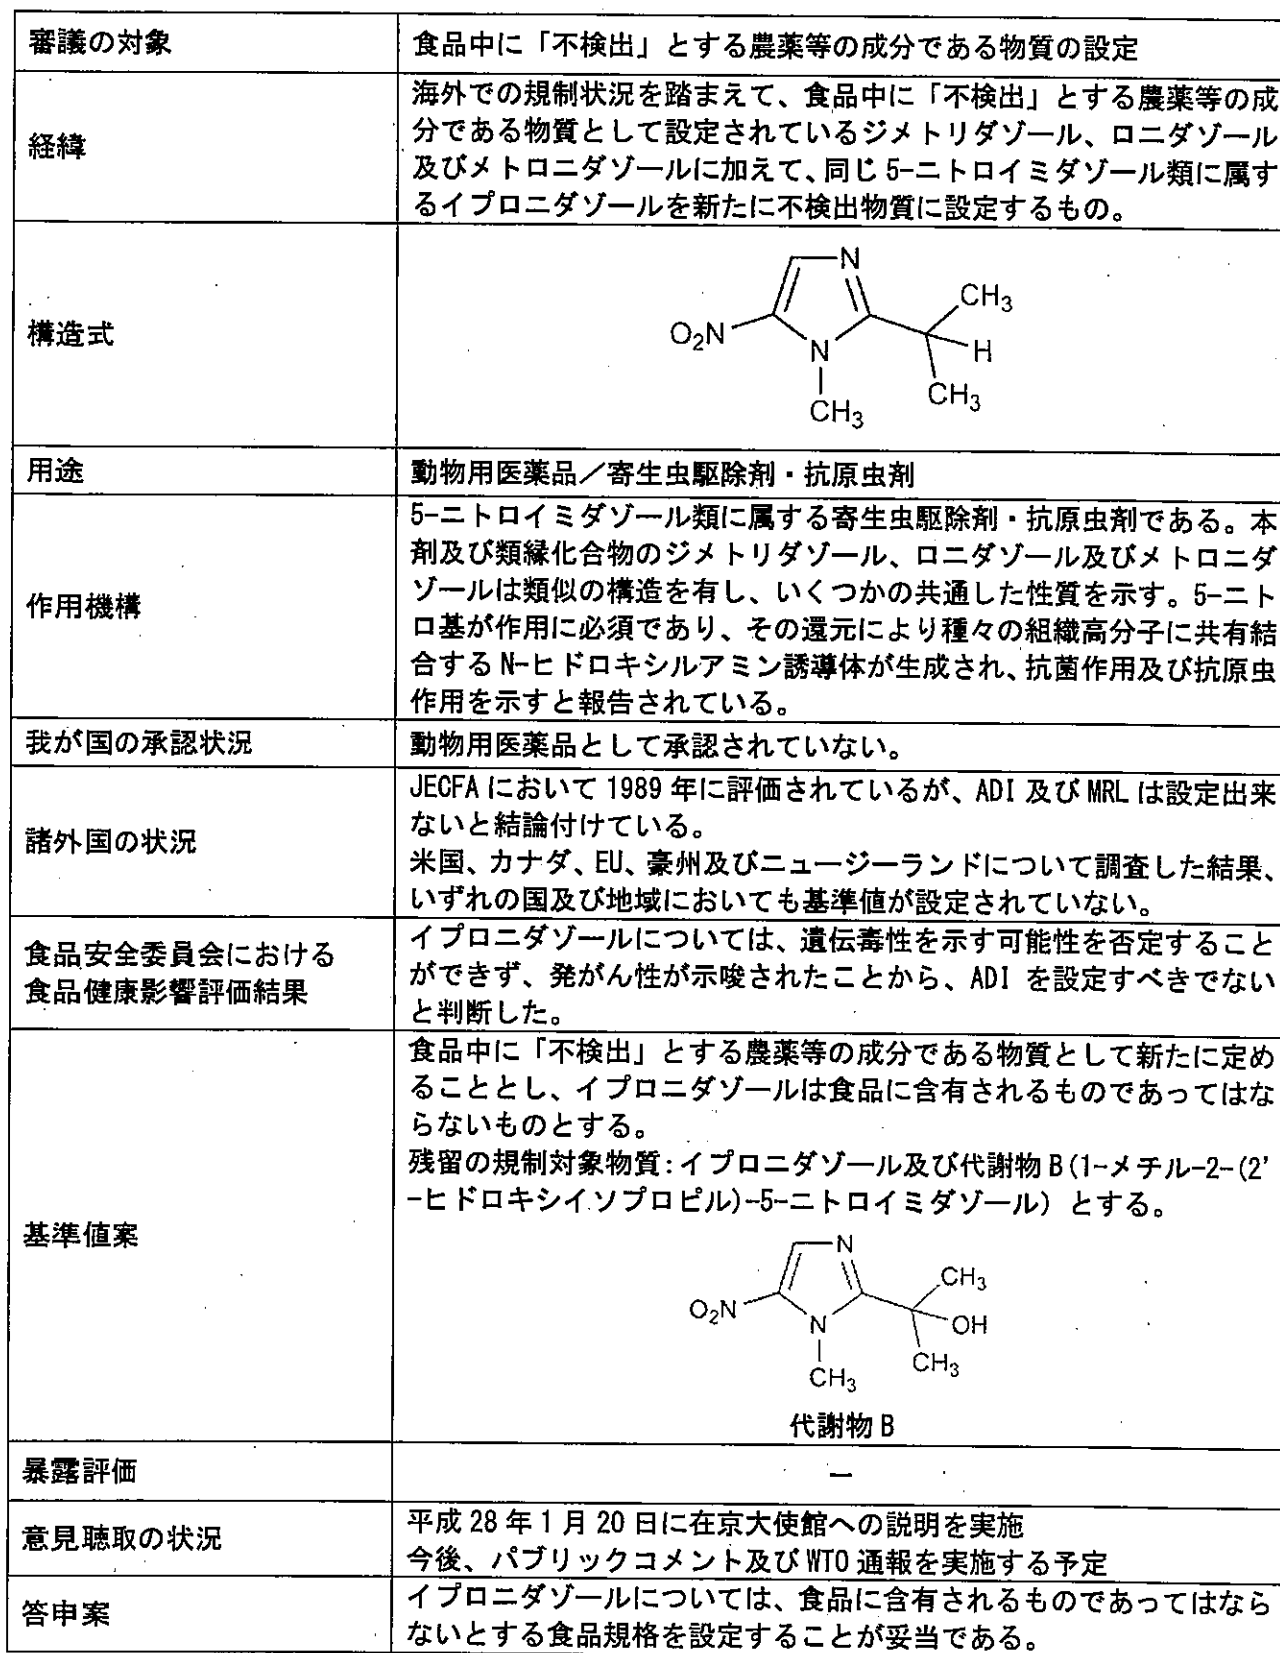 審議の対象
食品中に「不検出」とする農薬等の成分である物質の設定
経緯
海外での規制状況を踏まえて、食品中に「不検出」とする農薬等の成
分である物質として設定されているジメトリダゾール、ロニダゾール
及びメトロニダゾールに加えて、同じ5-ニトロイミダゾール類に属す
るイプロニダゾールを新たに不検出物質に設定するもの。
構造式
N
CH3
O2N
H
N
CH3
CH3
用途
動物用医薬品／寄生虫駆除剤・抗原虫剤
作用機構
5-ニトロイミダゾール類に属する寄生虫駆除剤・抗原虫剤である。本
剤及び類縁化合物のジメトリダゾール、ロニダゾール及びメトロニダ
ゾールは類似の構造を有し、いくつかの共通した性質を示す。5-ニト
ロ基が作用に必須であり、その還元により種々の組織高分子に共有結
合するN-ヒドロキシルアミン誘導体が生成され、抗菌作用及び抗原虫
作用を示すと報告されている。
我が国の承認状況
動物用医薬品として承認されていない。
諸外国の状況
JECFAにおいて1989年に評価されているが、ADI及びMRLは設定出来
ないと結論付けている。
米国、カナダ、EU、豪州及びニュージーランドについて調査した結果、
いずれの国及び地域においても基準値が設定されていない。
食品安全委員会における
食品健康影響評価結果
イプロニダゾールについては、遺伝毒性を示す可能性を否定すること
ができず、発がん性が示唆されたことから、ADI を設定すべきでない
と判断した。
基準値案
食品中に「不検出」とする農薬等の成分である物質として新たに定め
ることとし、イプロニダゾールは食品に含有されるものであってはな
らないものとする。
残留の規制対象物質:イプロニダゾール及び代謝物B(1-メチル-2-(2'
-ヒドロキシイソプロピル)-5-ニトロイミダゾール）とする。
N
CH3
O2N
OH
N
CH3
CH3
代謝物B
暴露評価
－
意見聴取の状況
平成28年1月20日に在京大使館への説明を実施
今後、パブリックコメント及びWTO通報を実施する予定
答申案
イプロニダゾールについては、食品に含有されるものであってはなら
ないとする食品規格を設定することが妥当である。